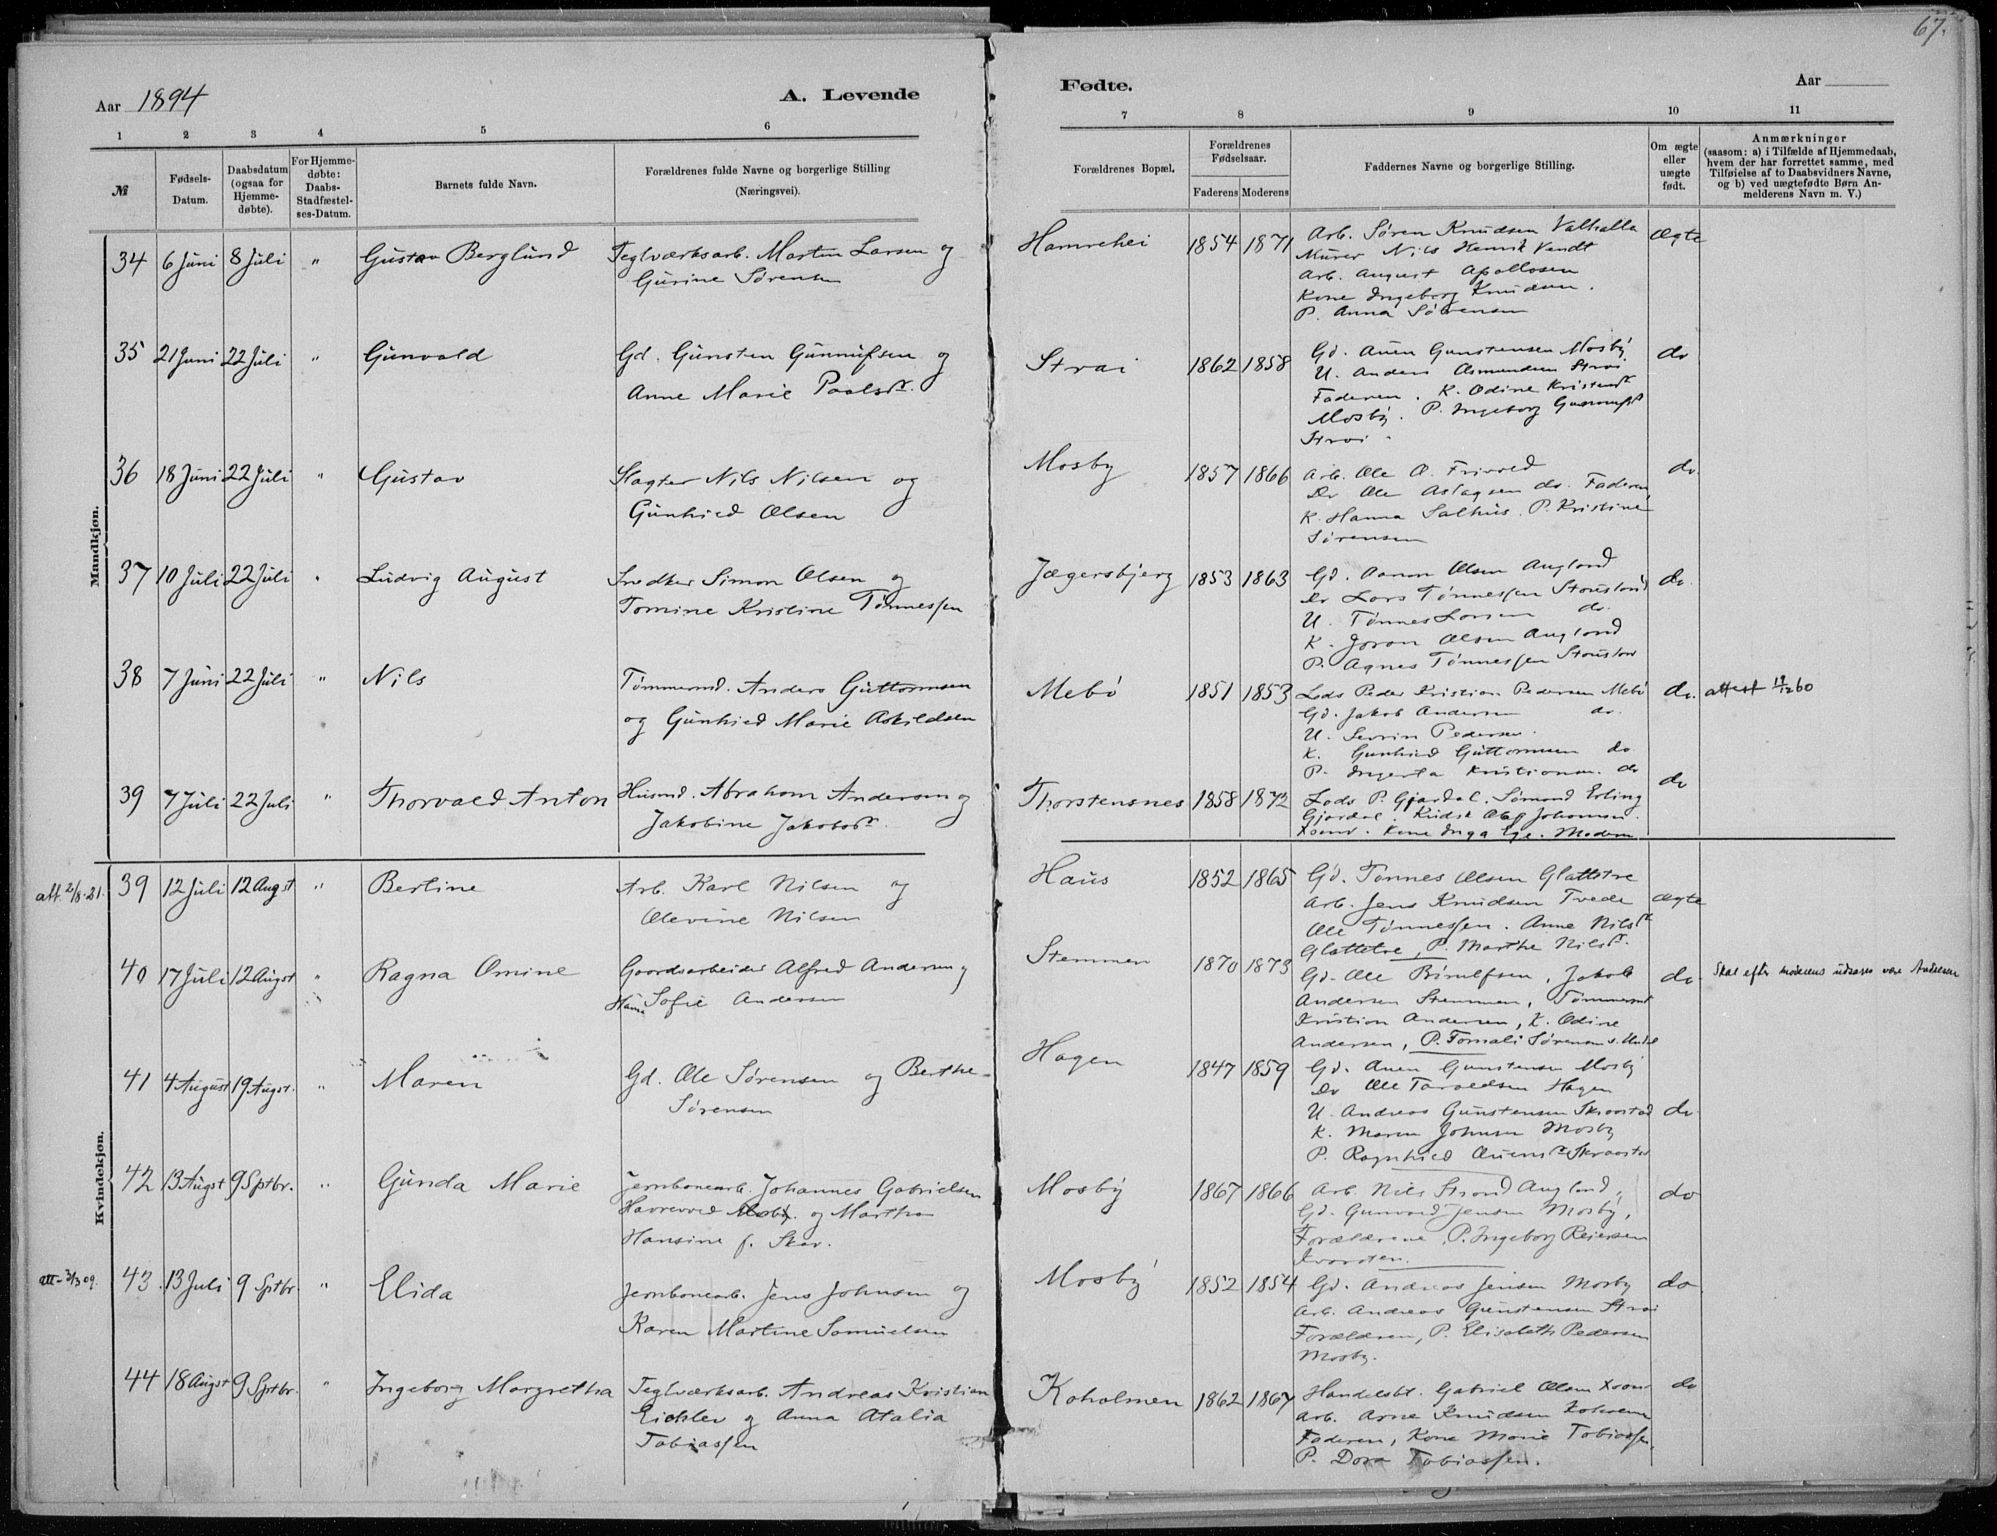 67.
Aar 1894
A. Levende
Fødte.
Aar
1 2 3 4 5 6
7 8 9 10 11
№
Fødsels-
Datum.
Daabsdatum
(ogsaa for
Hjemme-
døbte).
For Hjemme-
døbte:
Daabs-
Stadfæstel-
ses-Datum.
Barnets fulde Navn.
Forældrenes fulde Navne og borgerlige Stilling
(Næringsvei).
Forældrenes Bopæl.
Forældrenes
Fødselsaar.
Faderens Moderens
Faddernes Navne og borgerlige Stilling.
Om ægte
eller
uægte
født.
Anmærkninger
(saasom: a) i Tilfælde af Hjemmedaab,
hvem der har forrettet samme, med
Tilføielse af to Daabsvidners Navne,
og b) ved uægtefødte Børn An-
melderens Navn m. V.)
Mandkjøn.
34 6 Juni 8 Juli " Gustav Berglund Teglværksarb. Martin Larsen og
Gurine Sørensen
Hamrehei 1854 1871 Arb. Søren Knudsen Valhalla ægte
Murer Nils Henrik Vendt
Arb. August Apollosen
Kone Ingeborg Knudsen.
P. Anna Sørensen
35 21 Juni 22 Juli " Gunvald Gd. Gunsten Gunnufsen og
Anne Marie Paalsdr.
Strai 1862 1858 Gd. Auen Gunstensen Mosby do
U. Anders Osmundsen Strai
Faderen. K. Odine Kristensdr
Mosby. P. Ingeborg Gunnufsdr
Strai
36 18 Juni 22 Juli " Gustav Slagter Nils Nilsen og
Gunhild Olsen
Mosby 1857 1866 Arb. Ole O. Frivold do.
Do Ole Aslagsen do. Faderen
K. Hanna Salhus. P. Kristine
Sørensen
37 10 Juli 22 Juli " Ludvig August Snedker Simon Olsen og
Tomine Kristine Tønnessen
Jægersbjerg 1853 1863 Gd. Aanon Olsen Augland do.
Do Lars Tønnessen Stousland
U. Tønnes Larsen do.
K. Joran Olsen Augland
P. Agnes Tønnessen Stousland
38 7 Juni 22 Juli " Nils Tømmermd. Anders Guttormsen
og Gunhild Marie Askildsen
Mebø 1851 1853 Lods Peder Kristian Pedersen Mebø do. attest 19/12 60
Gd. Jakob Andersen do.
U. Severin Pedersen.
K. Gunhild Guttormsen do
P. Ingerta Kristiansen. do
39 7 Juli 22 Juli " Thorvald Anton Husmd. Abraham Andersen og
Jakobine Jakobsdr.
Thorstensnes 1858 1872 Lods P. Gjardal. Sømand Erling do
Gjardal. Kudsk Olaf Johansen.
Xsand. Kone Inga Ege. Moderen
Kvindekjøn.
att. 2/8-21. 39 12 Juli 12 Augst " Berline Arb. Karl Nilsen og
Olevine Nilsen
Haus 1852 1865 Gd. Tønnes Olsen Glattetre
Arb. Jens Knudsen Tvede ægte
Ole Tønnessen. Anne Nilsdr
Glattetre, P. Marthe Nilsdr.
40 17 Juli 12 Augst " Ragna Omine Gaardsarbeider Alfred Andersen og
Hanna Sofie Andersen
Stemmen 1870 1873 Gd. Ole Brynulfsen, Jakob do. Skal efter moderens udsagn være Andersen
Andersen Stemmen, Tømmermd
Kristian Andersen, K. Odine
Andersen, P. Tomali Sørensen
41 4 August 19 Augst. " Maren Gd. Ole Sørensen og Berthe
Sørensen
Hagen 1847 1859 Gd. Auen Gunstensen Mosby
Do Ole Tarvaldsen Hagen
U. Andreas Gunstensen Skraastad do.
K. Maren Johnsen Mosby
P. Ragnhild Auensdr Skraastad
42 13 Augst 9 Sptbr. " Gunda Marie Jernbanearb. Johannes Gabrielsen
Haverevold Mosby. og Martha
Hansine f. Skar.
Mosby 1867 1866 Arb. Nils Strand Augland, do
Gd. Gunvald Jensen Mosby,
Forældrene, P. Ingeborg Reiersen
Kvarsten.
att- 3/3 09. 43. 13 Juli 9 Sptbr. " Elida Jernbanearb. Jens Johnsen og
Karen Martine Samuelsen
Mosby 1852 1854 Gd. Andreas Jensen Mosby do
Arb. Andreas Gunstensen Strai
Forældren, P. Elisabeth Pedersen
Mosby.
44 18 Augst 9 Sptbr. " Ingeborg Margretha Teglværksarb. Andreas Kristian
Eichler og Anna Atalia
Tobiassen
Koholmen 1862 1867 Handelsbt. Gabriel Olsen Xsand do
Arb. Arne Knudsen Koholmen
Faderen, Kone Marie Tobiassen,
P. Dora Tobiassen.